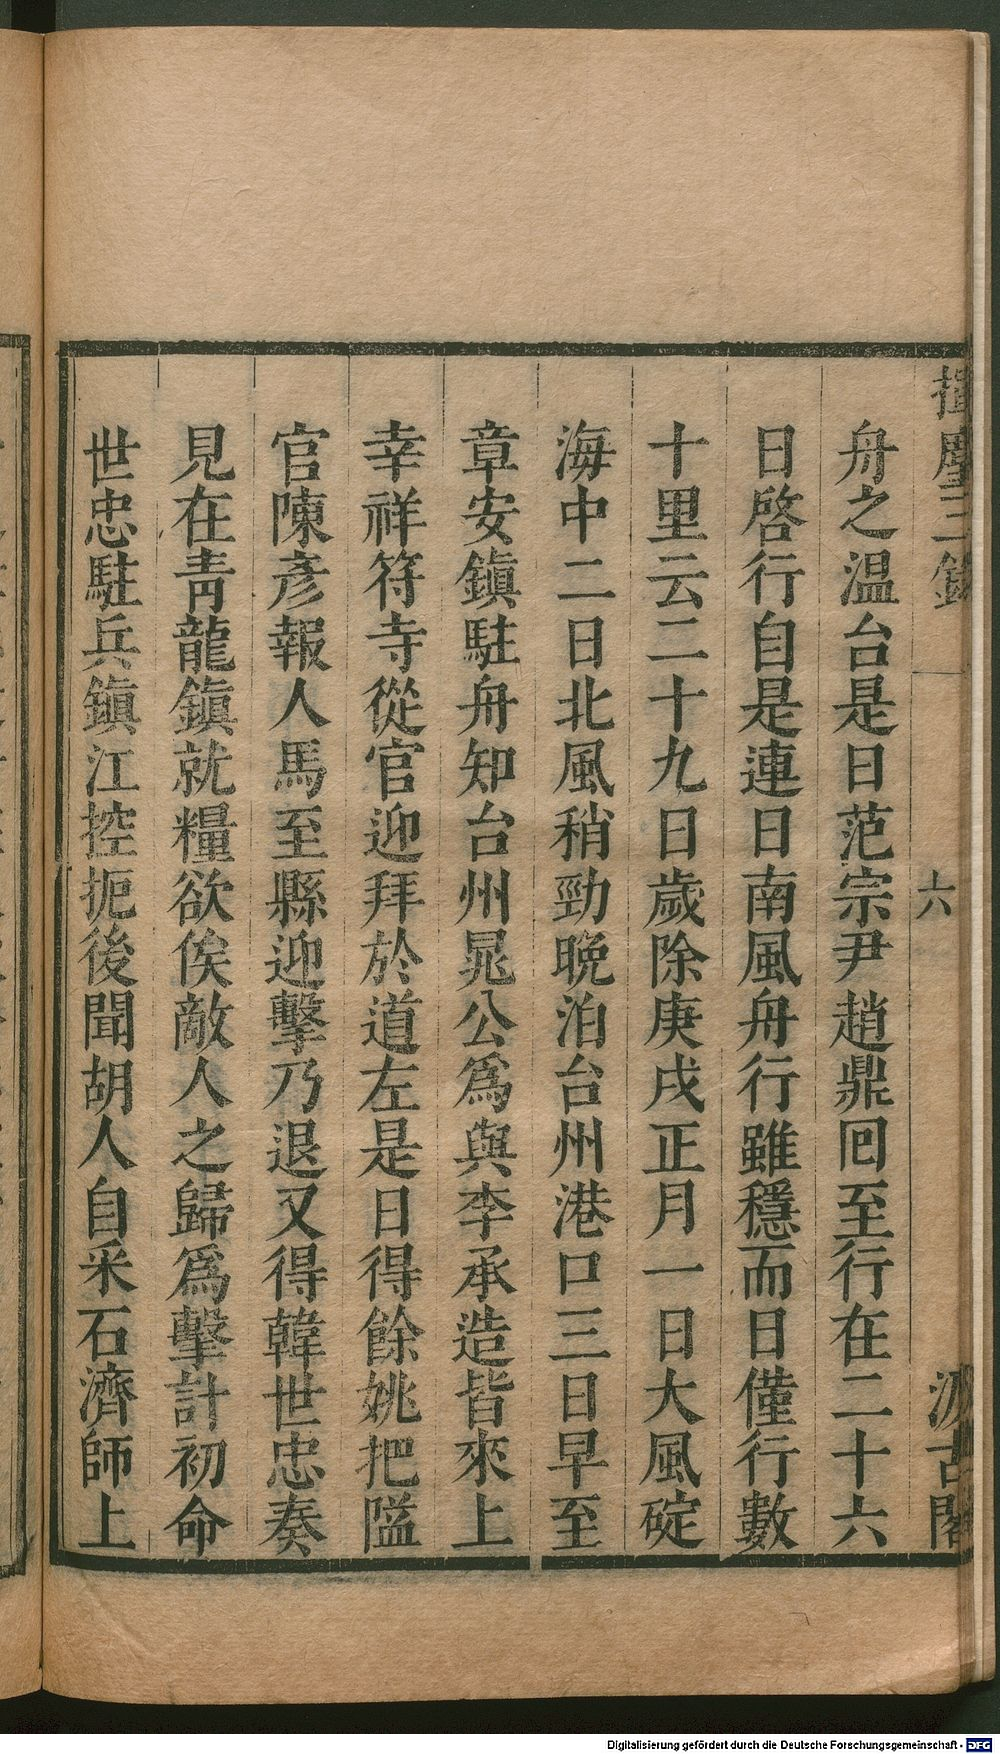 揮塵三錄
六
汲古閣
舟之温台是日范宗尹趙鼎囘至行在二十六
日啓行自是連日南風舟行雖穩而日僅行數
十里云二十九日歲除庚戌正月一日大風碇
海中二日北風稍勁晚泊台州港口三日早至
章安鎮駐舟知台州晁公爲與李承造皆來上
幸祥符寺從官迎拜於道左是日得餘姚把隘
官陳彥報人馬至縣迎擊乃退又得韓世忠奏
見在青龍鎮就糧欲俟敵人之歸爲擊計初命
世忠駐兵鎮江控扼後聞胡人自采石濟師上
Digitalisierung gefördert durch die Deutsche Forschungsgemeinschaft - DFG